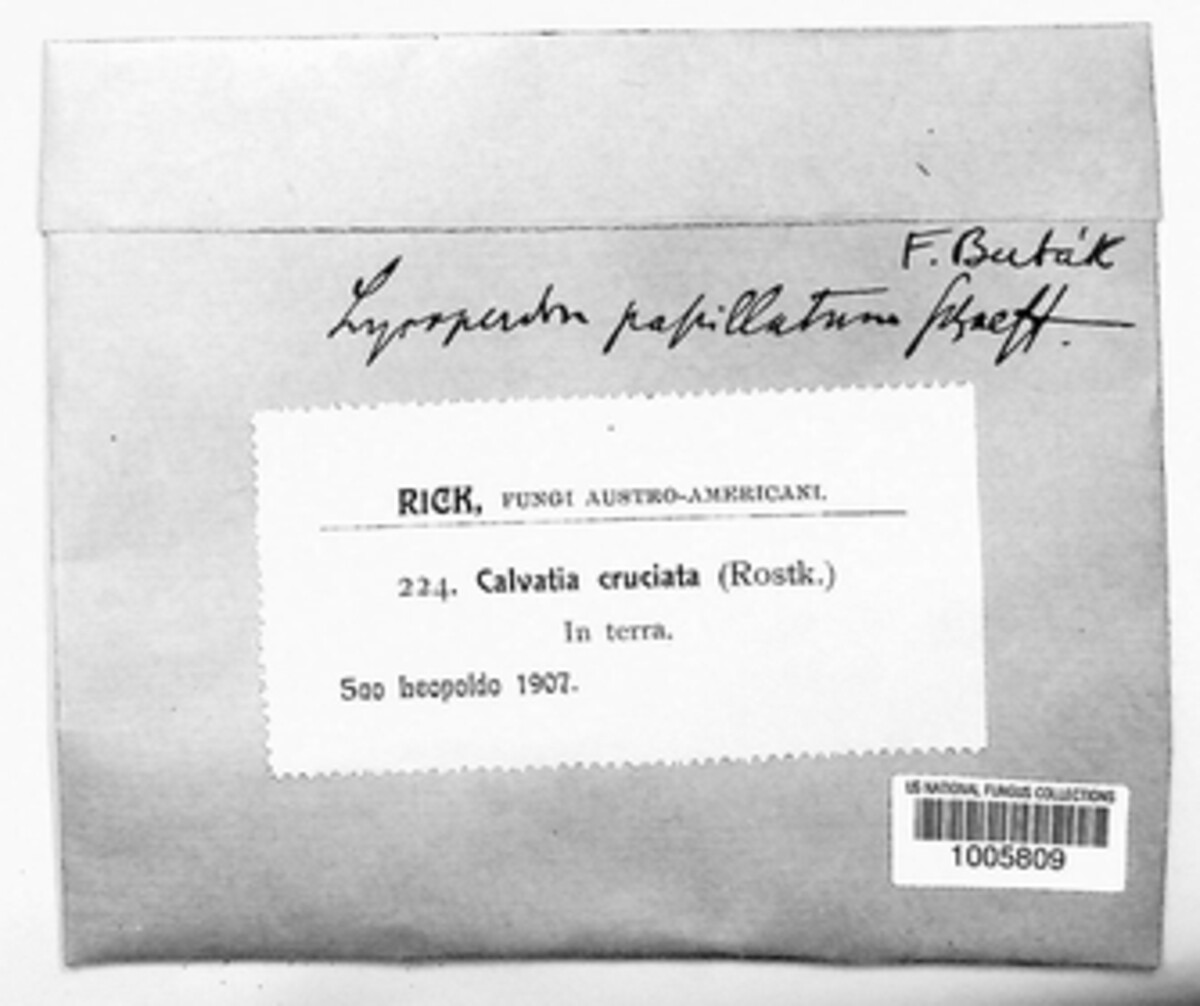 F. Bubák
Lycoperdon papillatum Schaeff.
RICK, FUNGI AUSTRO-AMERICANI.
224. Calvatia cruciata (Rostk.)
In terra.
Sao Leopoldo 1907.
US NATIONAL FUNGUS COLLECTIONS
1005809